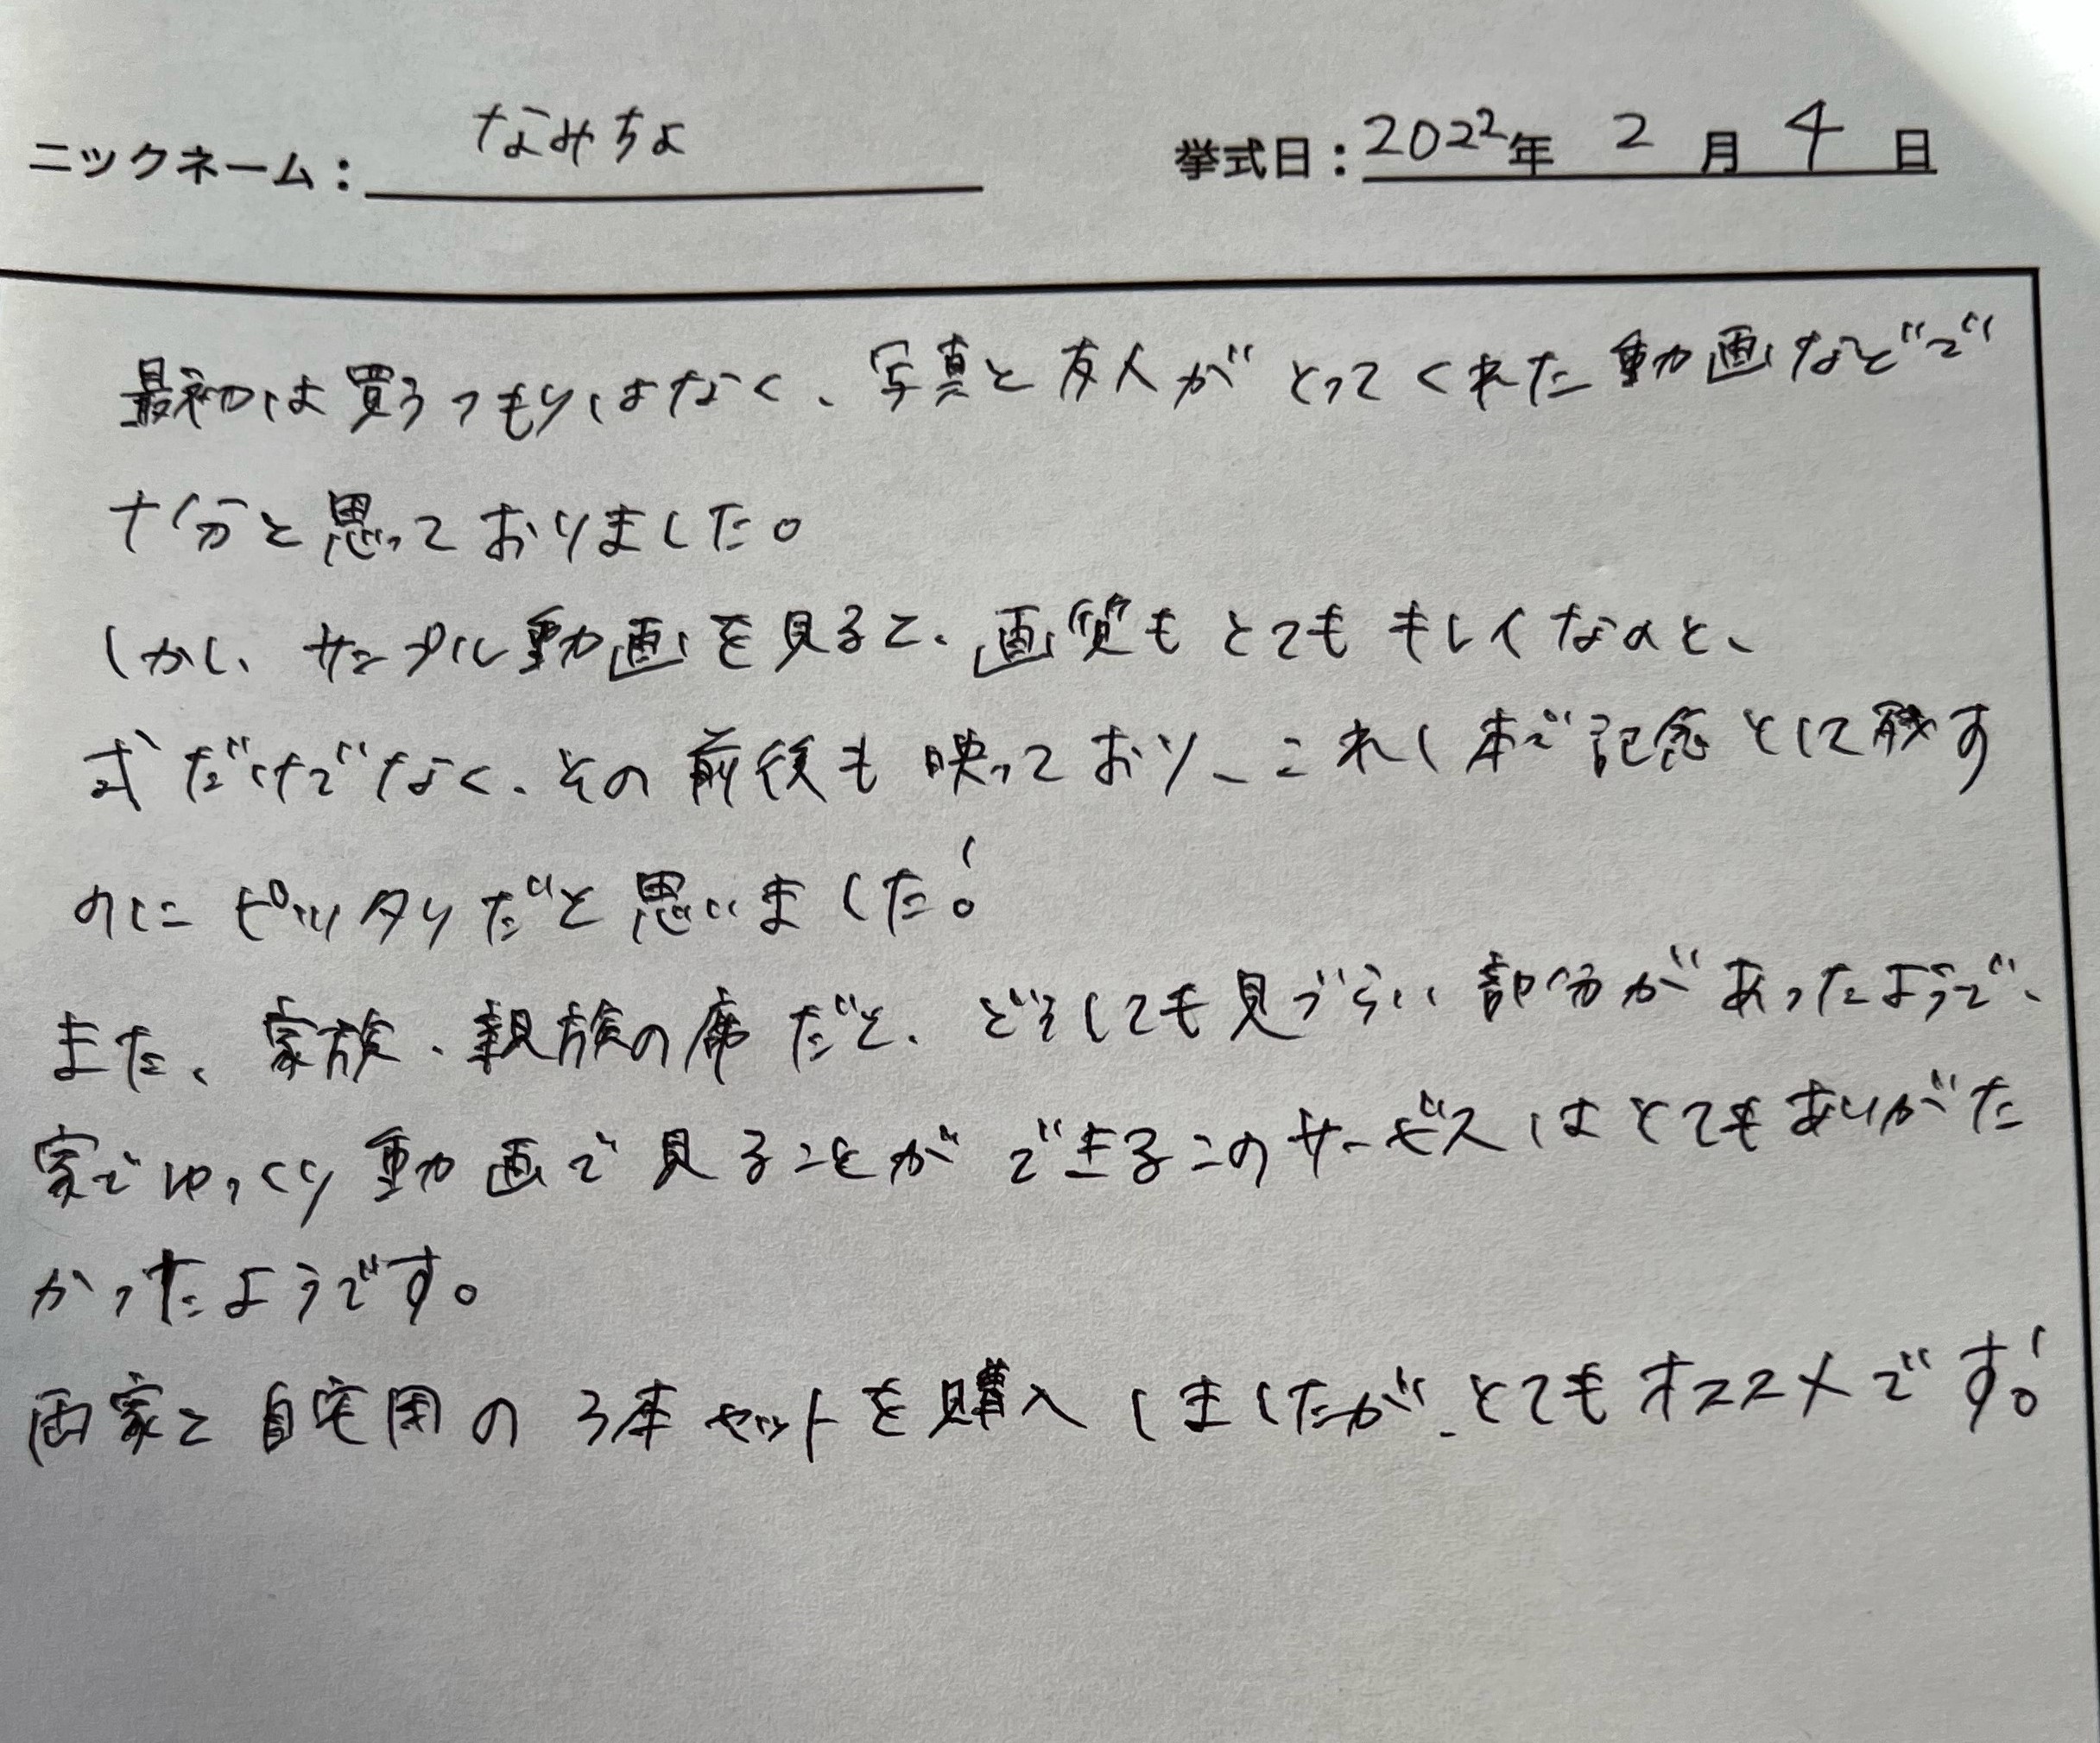 ニックネーム: なみちょ 挙式日: 2022年 2月 4日
最初は買うつもりはなく、写真と友人がとってくれた動画などで
十分と思っておりました。
しかし、サンプル動画を見ると、画質もとてもキレイなのと、
式だけでなく、その前後も映っており、これ1本で記念として残す
のにピッタリだと思いました!
また、家族・親族の席だと、どうしても見づらい部分があったようで、
家でゆっくり動画で見ることができるこのサービスはとてもありがた
かったようです。
両家と自宅用の3本セットを購入しましたが、とてもオススメです!